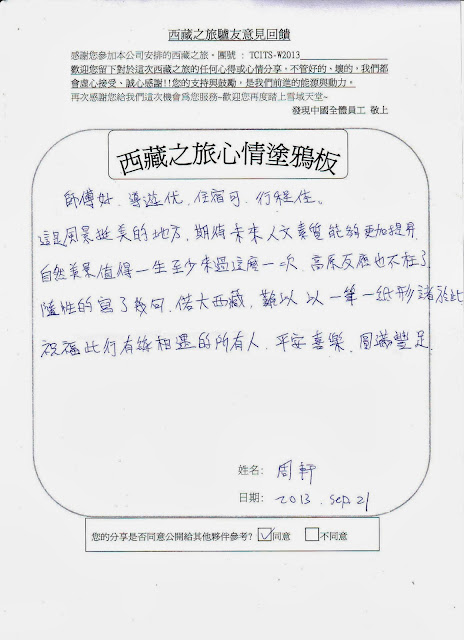 西藏之旅驢友意見回饋
感謝您參加本公司安排的西藏之旅。團號：TCITS-W2013
歡迎您留下對於這次西藏之旅的任何心得或心情分享，不管好的、壞的，我們都
會虛心接受、誠心感謝!!您的支持與鼓勵，是我們前進的能源與動力。
再次感謝您給我們這次機會為您服務~歡迎您再度踏上雪域天堂~
發現中國全體員工 敬上
西藏之旅心情塗鴉板
師傅好．導遊优．住宿可．行程佳。
這是風景挺美的地方．期待未來人文素質能夠更加提昇
自然美景值得一生至少來過這麼一次．高原反應也不在了
隨性的寫了幾句．偌大西藏．難以以一筆一紙形諸於此
祝福此行有緣相遇的所有人．平安喜樂．圓滿豐足．
姓名： 周軒
日期： 2013. Sep 21
您的分享是否同意公開給其他夥伴參考? ☑同意 □不同意